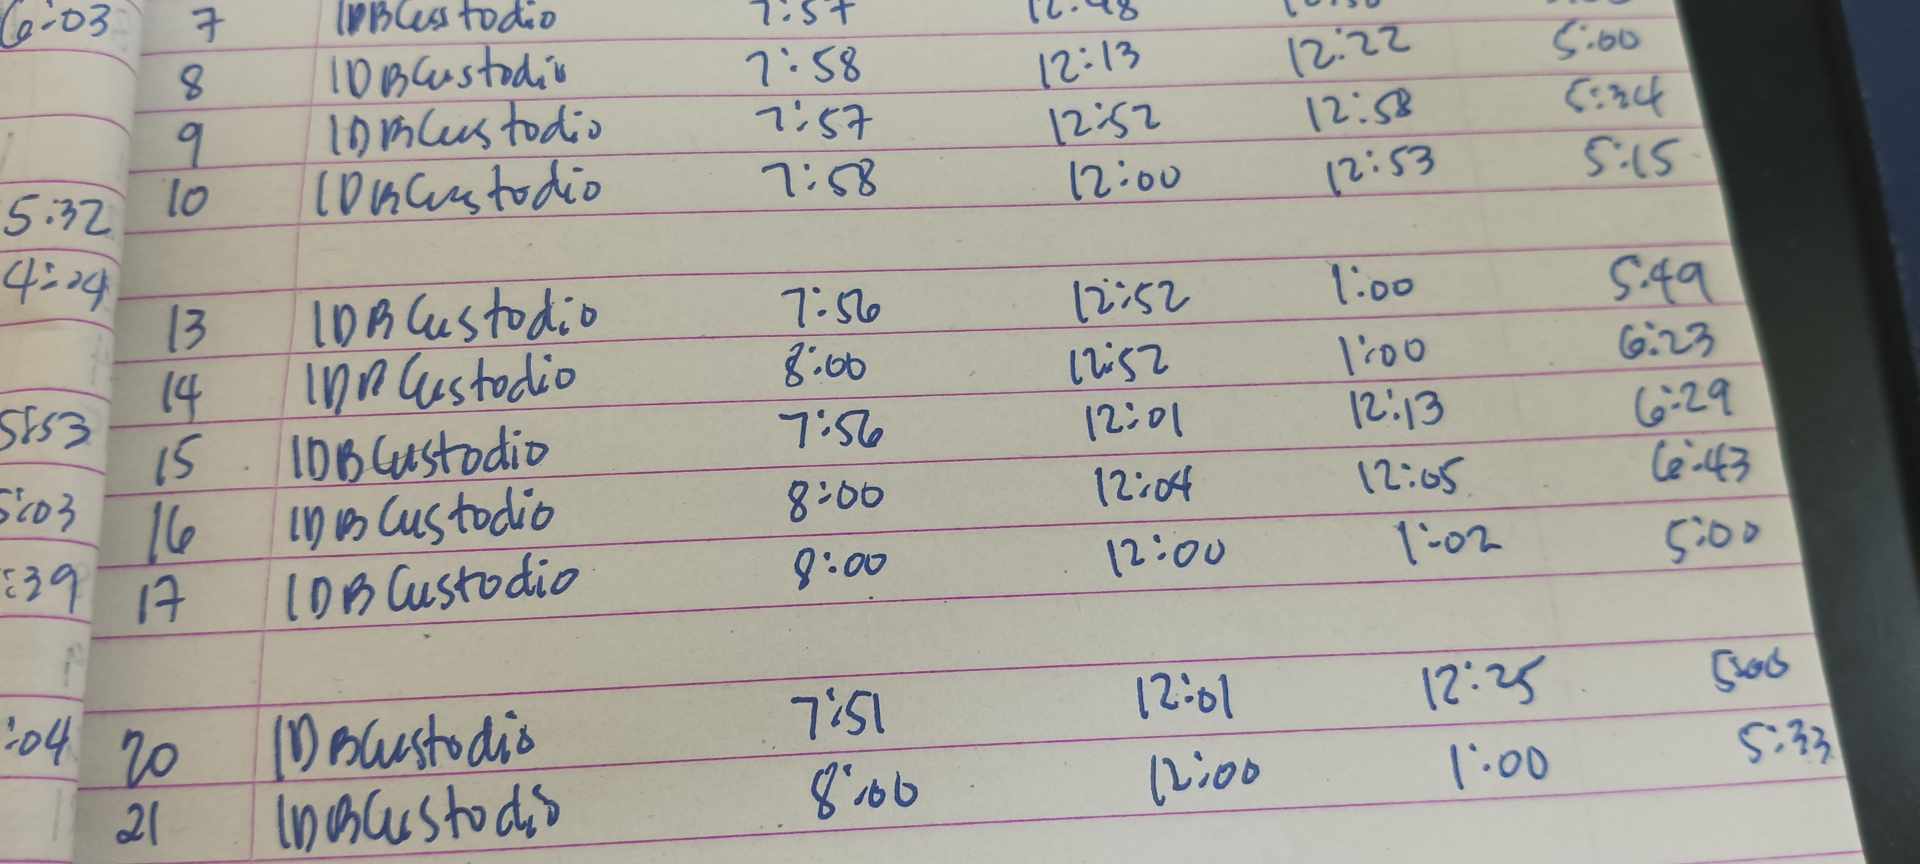 6:03
5:32
4:24
5:53
5:03
:39
:04
7 IDBCustodio 7:57 12:48
8 IDBCustodio 7:58 12:13 12:22 5:00
9 IDBCustodio 7:57 12:52 12:58 5:34
10 IDBCustodio 7:58 12:00 12:53 5:15
13 IDBCustodio 7:56 12:52 1:00 5:49
14 IDBCustodio 8:00 12:52 1:00 6:23
15 IDBCustodio 7:56 12:01 12:13 6:29
16 IDBCustodio 8:00 12:04 12:05 6:43
17 IDBCustodio 8:00 12:00 1:02 5:00
20 IDBCustodio 7:51 12:01 12:25 5:00
21 IDBCustodio 8:00 12:00 1:00 5:33